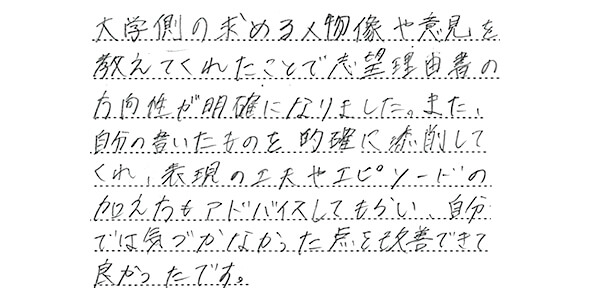 大学側の求める人物像や意見を
教えてくれたことで志望理由書の
方向性が明確になりました。また、
自分の書いたものを的確に添削して
くれ、表現の工夫やエピソードの
加え方もアドバイスしてもらい、自分
では気づかなかった点を改善できて
良かったです。